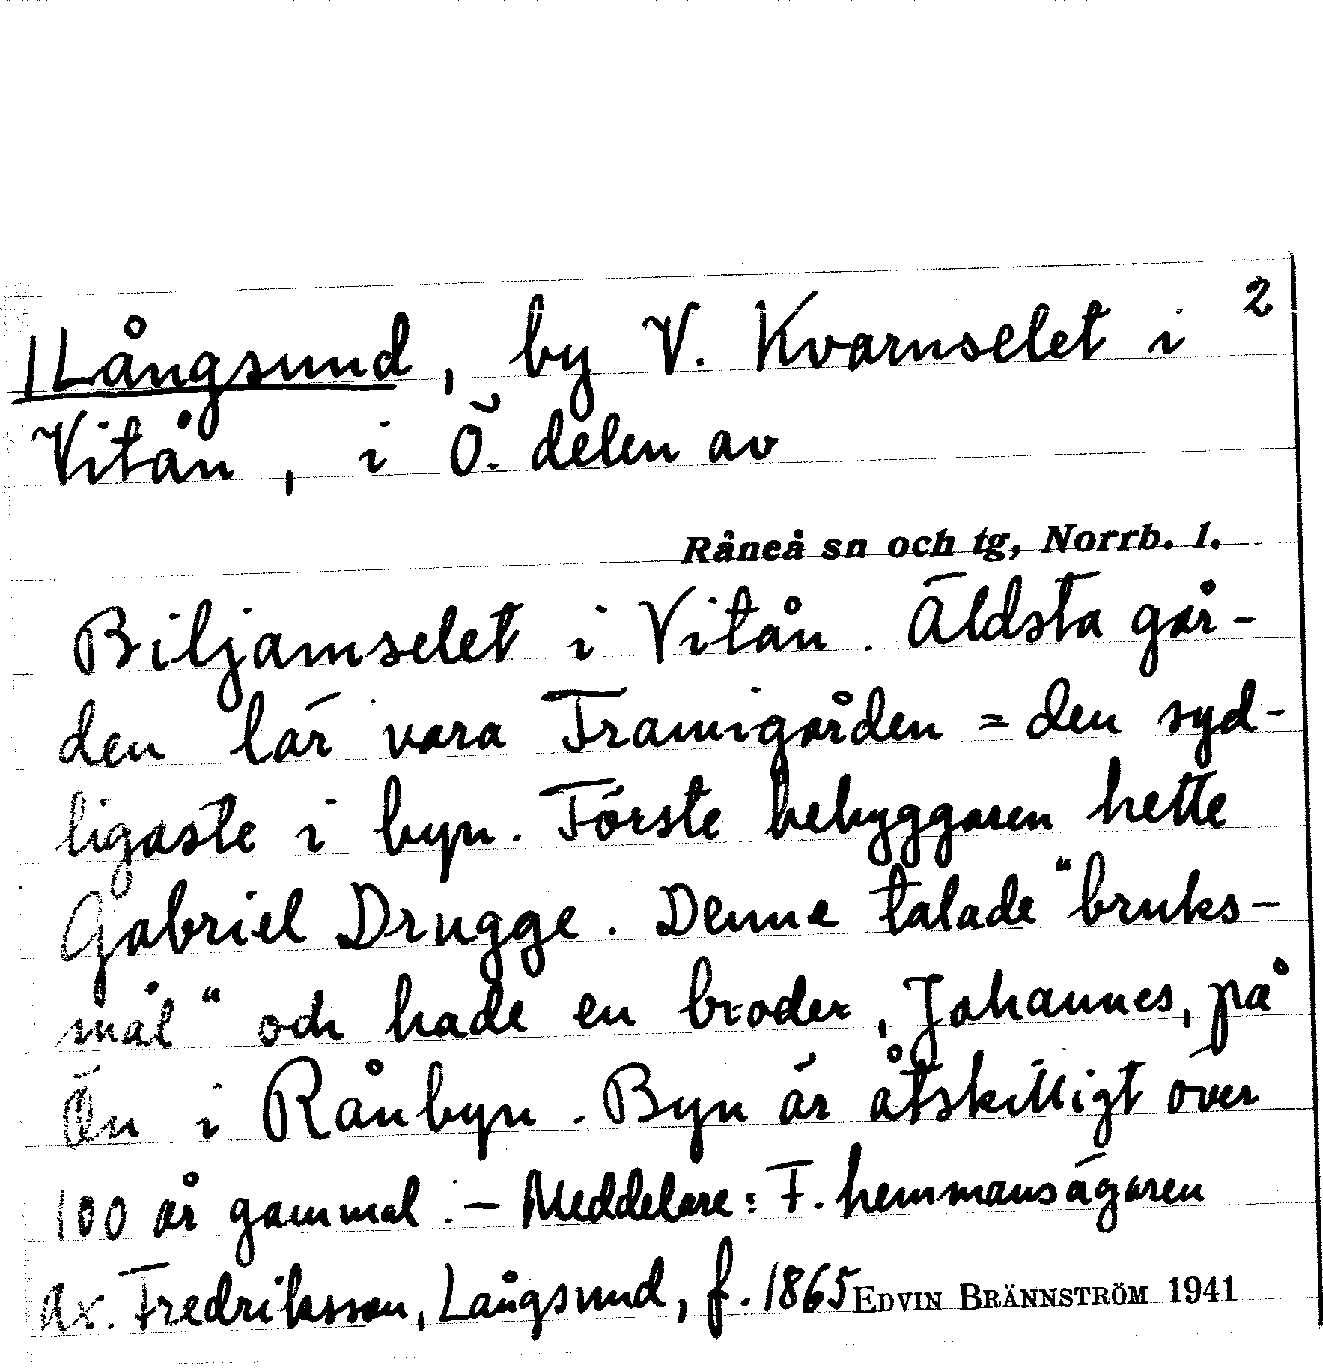 2
1Långsund, by V. Kvarnselet i
Vitån, i Ö. delen av
Råneå sn och tg, Norrb. l.
Biljamselet i Vitån. Äldsta går-
den lär vara Framigården = den syd-
ligaste i byn. Förste bebyggaren hette
Gabriel Drugge. Denne talade "bruks-
mål" och hade en broder, Johannes, på
Ön i Rånbyn. Byn är åtskilligt över
100 år gammal. - Meddelare: F. hemmansägaren
Ax. Fredriksson, Långsund, f. 1865 EDVIN BRÄNNSTRÖM 1941